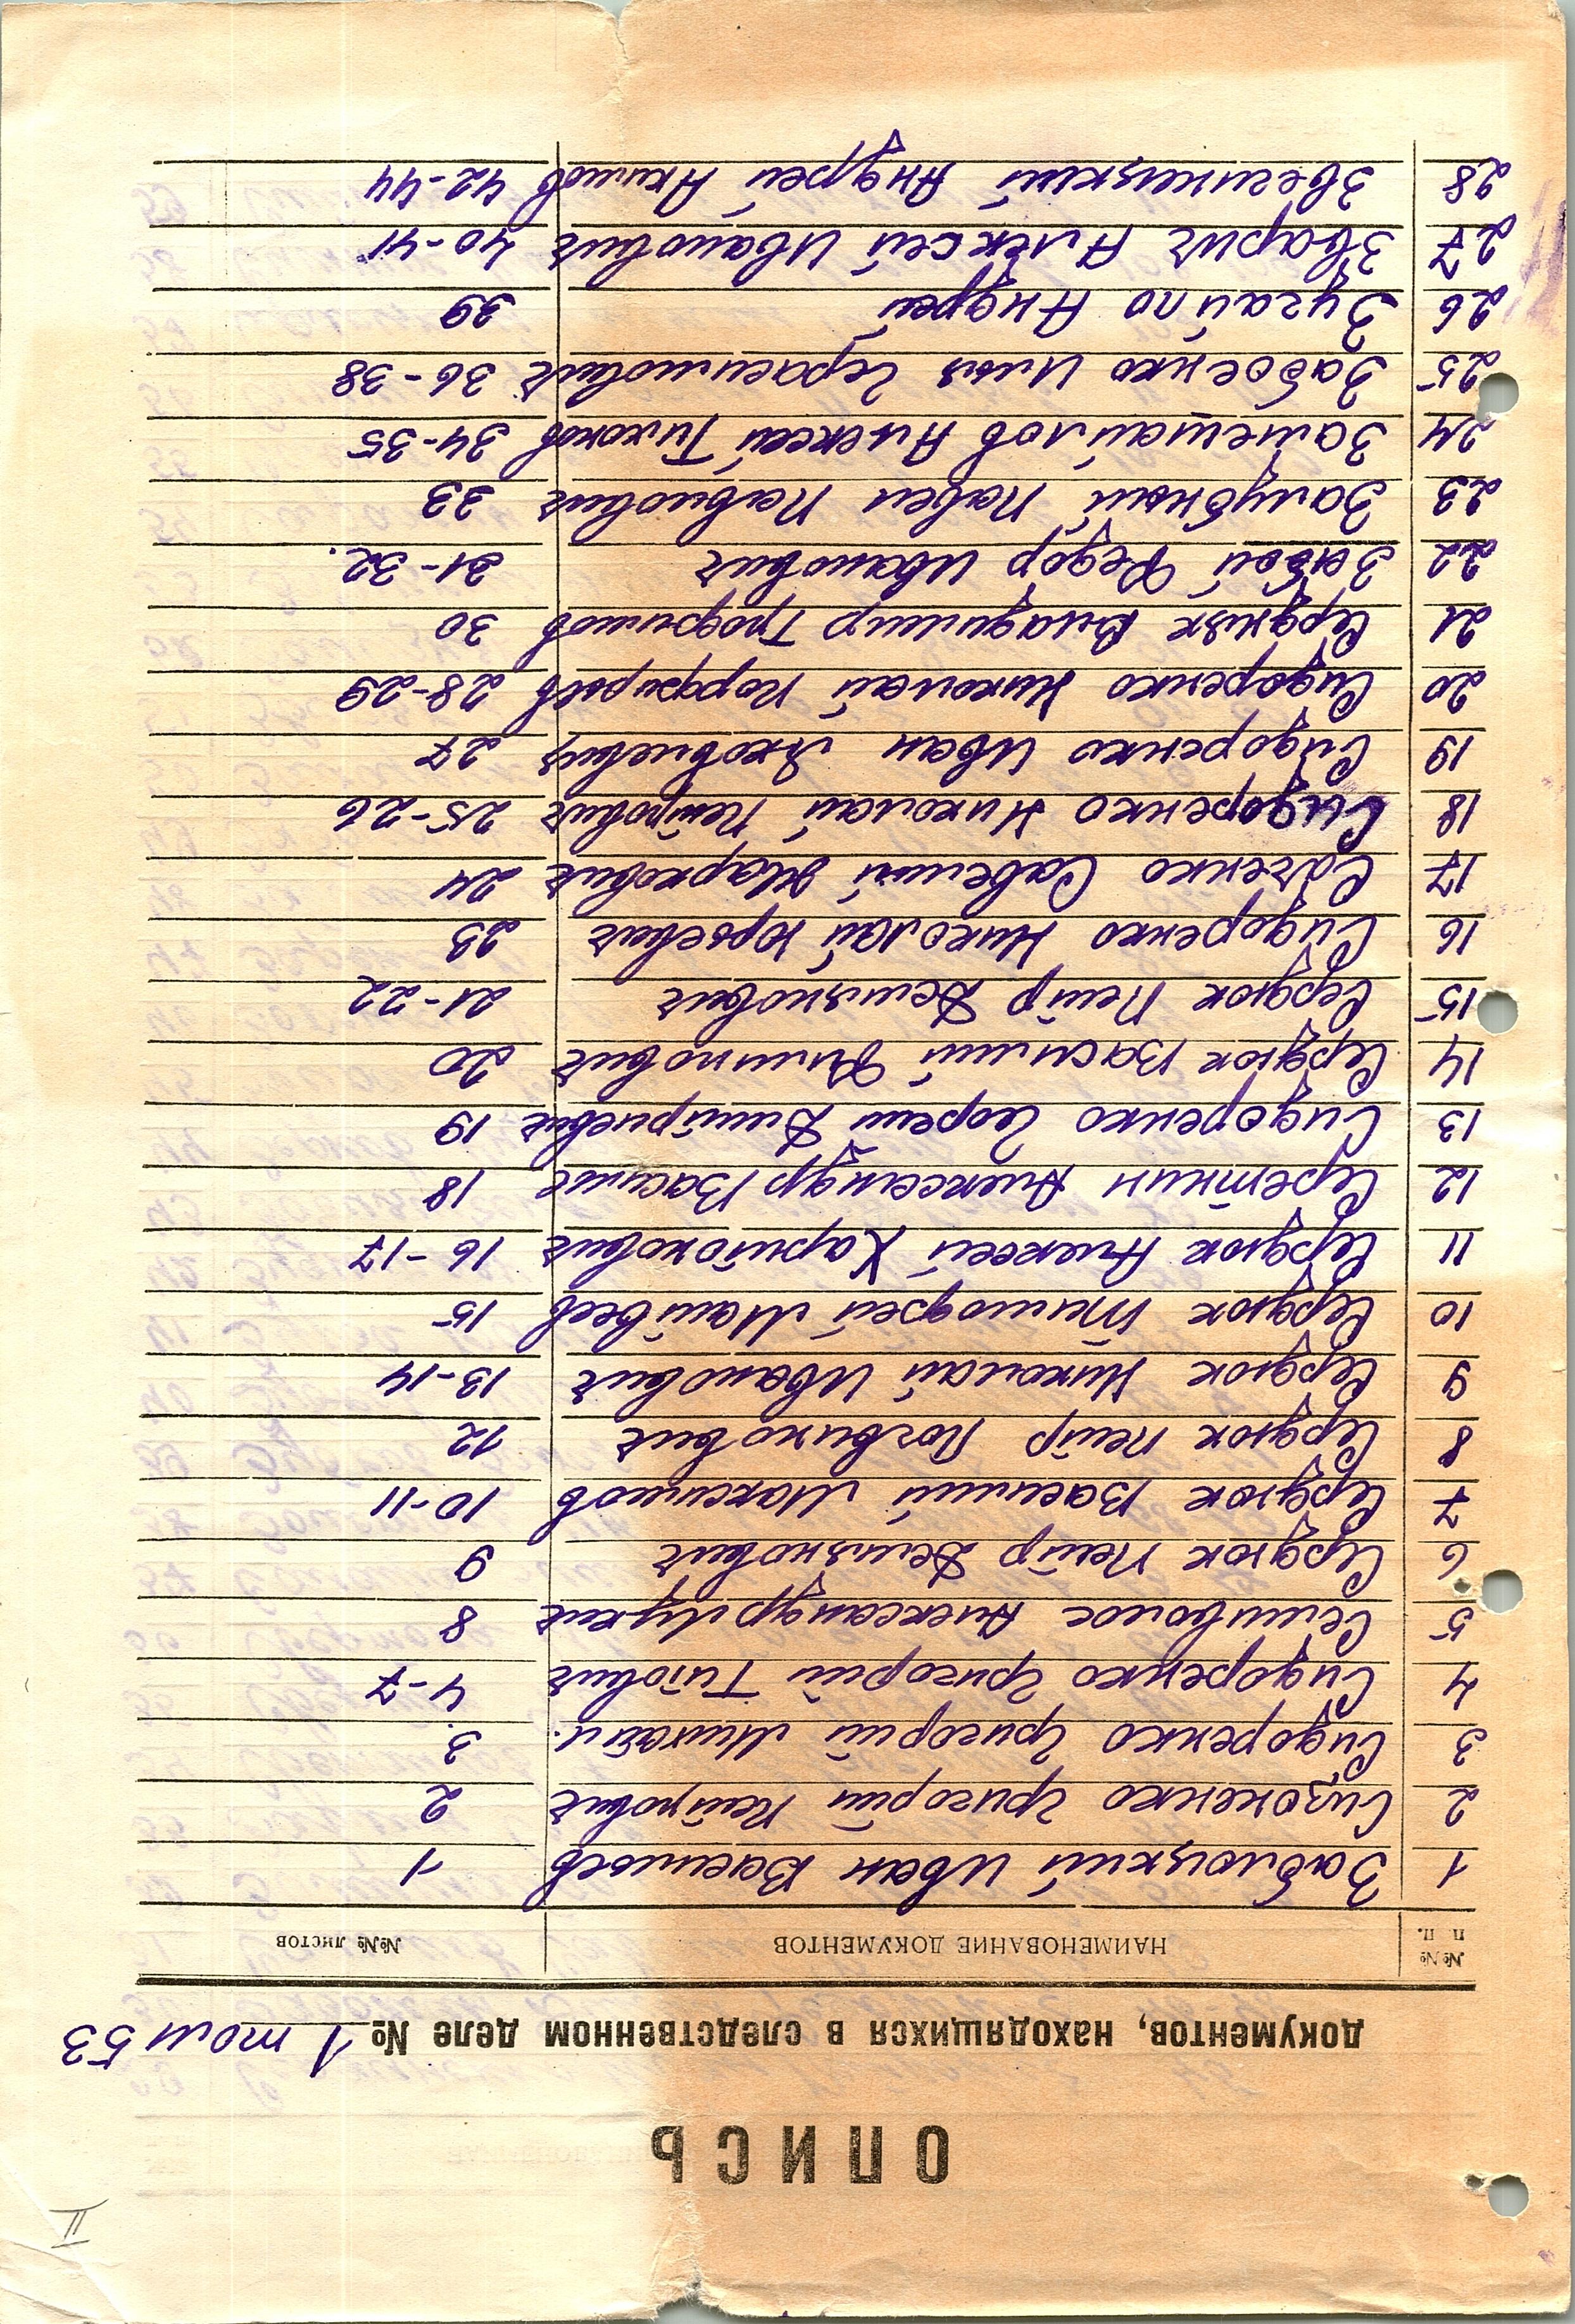 II
ОПИСЬ
документов, находящихся в следственном деле № 1 том 53
№№ п п. НАИМЕНОВАНИЕ ДОКУМЕНТОВ №№ листов
1 Заблоцкий Иван Васильев 1
2 Сизоненко Григорий Петрович 2
3 Сидоренко Григорий Михайл. 3.
4 Сидоренко Григорий Титович 4-7
5 Селиволос Александр Лукич 8
6 Сердюк Петр Демьянович 9
7 Сердюк Василий Максимов 10-11
8 Сердюк Петр Логвинович 12
9 Сердюк Николай Иванович 13-14
10 Сердюк Тимофей Матвеев 15
11 Сердюк Алексей Харитонович 16-17
12 Александр Васил 18
13 Сидоренко Георгий Дмитриевич 19
14 Сердюк Василий Филипович 20
15 Сердюк Петр Демьянович 21-22
16 Сидоренко Николай Юрьевич 23
17 Савелий Маркович 24
18 Сидоренко Николай Петрович 25-26
19 Сидоренко Иван Яковлевич 27
20 Сидоренко Николай Порфирьев 28-29
21 Сердняк Владимир Трофимов 30
22 Федор Иванович 31-32.
23 Залубный Павел Павлович 33
24 Алексей Тихонов 34-35
25 Забоенко Илья Герасимович 36-38
26 Андрей 39
27 Зварич Алексей Иванович 40-41
28 Звегинецкий Андрей Акимов 42-44